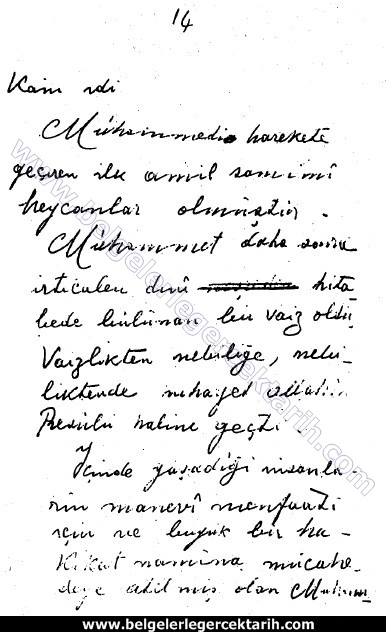 14
Kani idi
Mühammedi harekete
geçiren ilk amil samimî
heycanlar olmuştur.
Mühammet daha sonra
irticalen dinî hita
bede bulunan bir vaiz oldu
Vaizlikten nebiliğe, nebi-
liktende nihayet allahın
Resulü haline geçti.
İçinde yaşadığı insanla-
rın manevî menfaati
için ve büyük bir ha-
kikat namına mücahe-
deye atılmış olan Muham
www.belgelerlegercektarih.com
www.belgelerlegercektarih.com